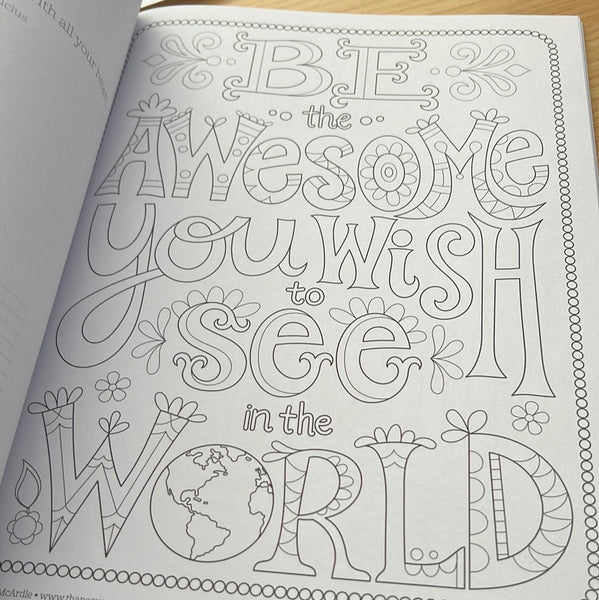 with all your heart
BE
the
AWeSOMe
you WiSH
to
see
in the
WORLD
McArdle • www.thepa